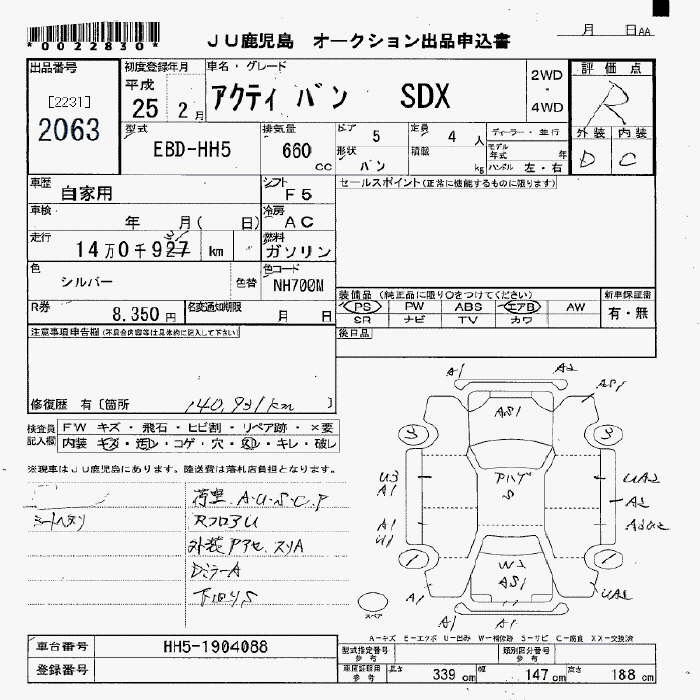 *0022830*
JU鹿児島 オークション出品申込書
月 日AA
出品番号
[2231]
2063
初度登録年月
平成 25年 2月
車名・グレード
アクティ バン SDX
2WD
・
4WD
評価点
R
外装 内装
D C
型式
EBD-HH5
排気量
660 cc
ドア 5
形状 バン
定員 4 人
積載 kg
ディーラー・並行
モデル年式 年
ハンドル 左・右
車歴
自家用
シフト
F5
セールスポイント(正常に機能するものに限ります)
車検
年 月( 日)
冷房
AC
走行
14万0千927 km
31
燃料
ガソリン
色
シルバー
色替
色コード
NH700M
装備品 (純正品に限り○をつけてください)
新車保証書
PS PW ABS エアB AW
有・無
SR ナビ TV カワ
R券
8,350円
名変通知期限
月 日
後日品
注意事項申告欄(不具合内容等は具体的に記入して下さい)
修復歴 有〔箇所 140,931km 〕
検査員記入欄
FW キズ・飛石・ヒビ割・リペア跡・×要
内装・キズ・汚レ・コゲ・穴・スレ・キレ・破レ
※現車はJU鹿児島にあります。陸送費は落札店負担となります。
シートヘタリ
荷室.A.U.S.C.P
RフロアU
外装アアセ.スリA
DミラーA
下回りS
A1 A2
AS1
AS1
3 3
U3
A1
アハゲ
S
UA2
A2
A1
U1
1 1
W2
AS1
UA2
A1
A1 A1
スペア
A-キズ E-エクボ U-凹み W-補修跡 S-サビ C-腐食 XX-交換済
車台番号
HH5-1904088
登録番号
型式指定番号 参考
類別区分番号 参考
車庫証明用 参考
長さ 339 cm
幅 147 cm
高さ 188 cm